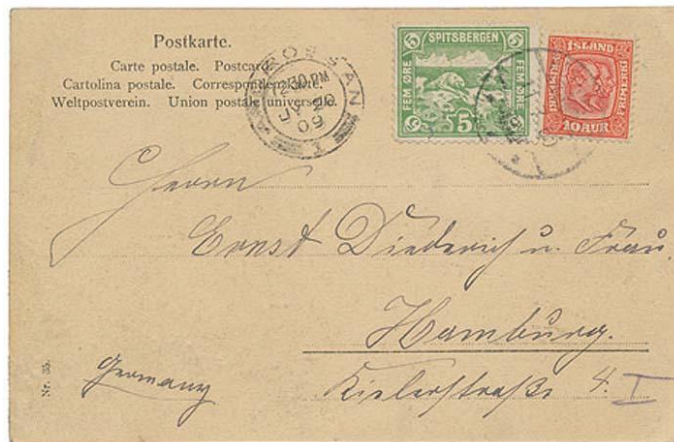 Postkarte.
Carte postale. Postcard
Cartolina postale. Correspondenzkarte.
Weltpostverein. Union postale universelle.
2.30 PM
JY 20
09
SPITSBERGEN
FEM ØRE
FEM ØRE
5
ISLAND
FRIMERKI
10 AUR
Herrn
Ernst Diederich u. Frau.
Hamburg.
Kielerstraße 4. I
Germany
Nr. 35.